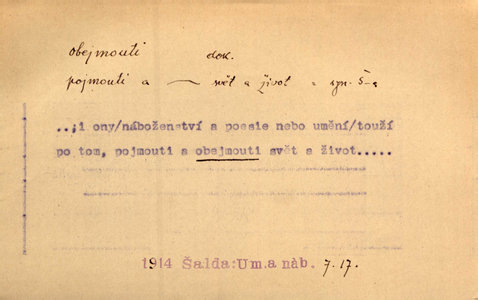 obejmouti dok.
pojmouti a — svět a život
..,i ony/náboženství a poesie nebo umění/touží
po tom, pojmouti a obejmouti svět a život.....
1914 Šalda:Um.a náb. 7.17.